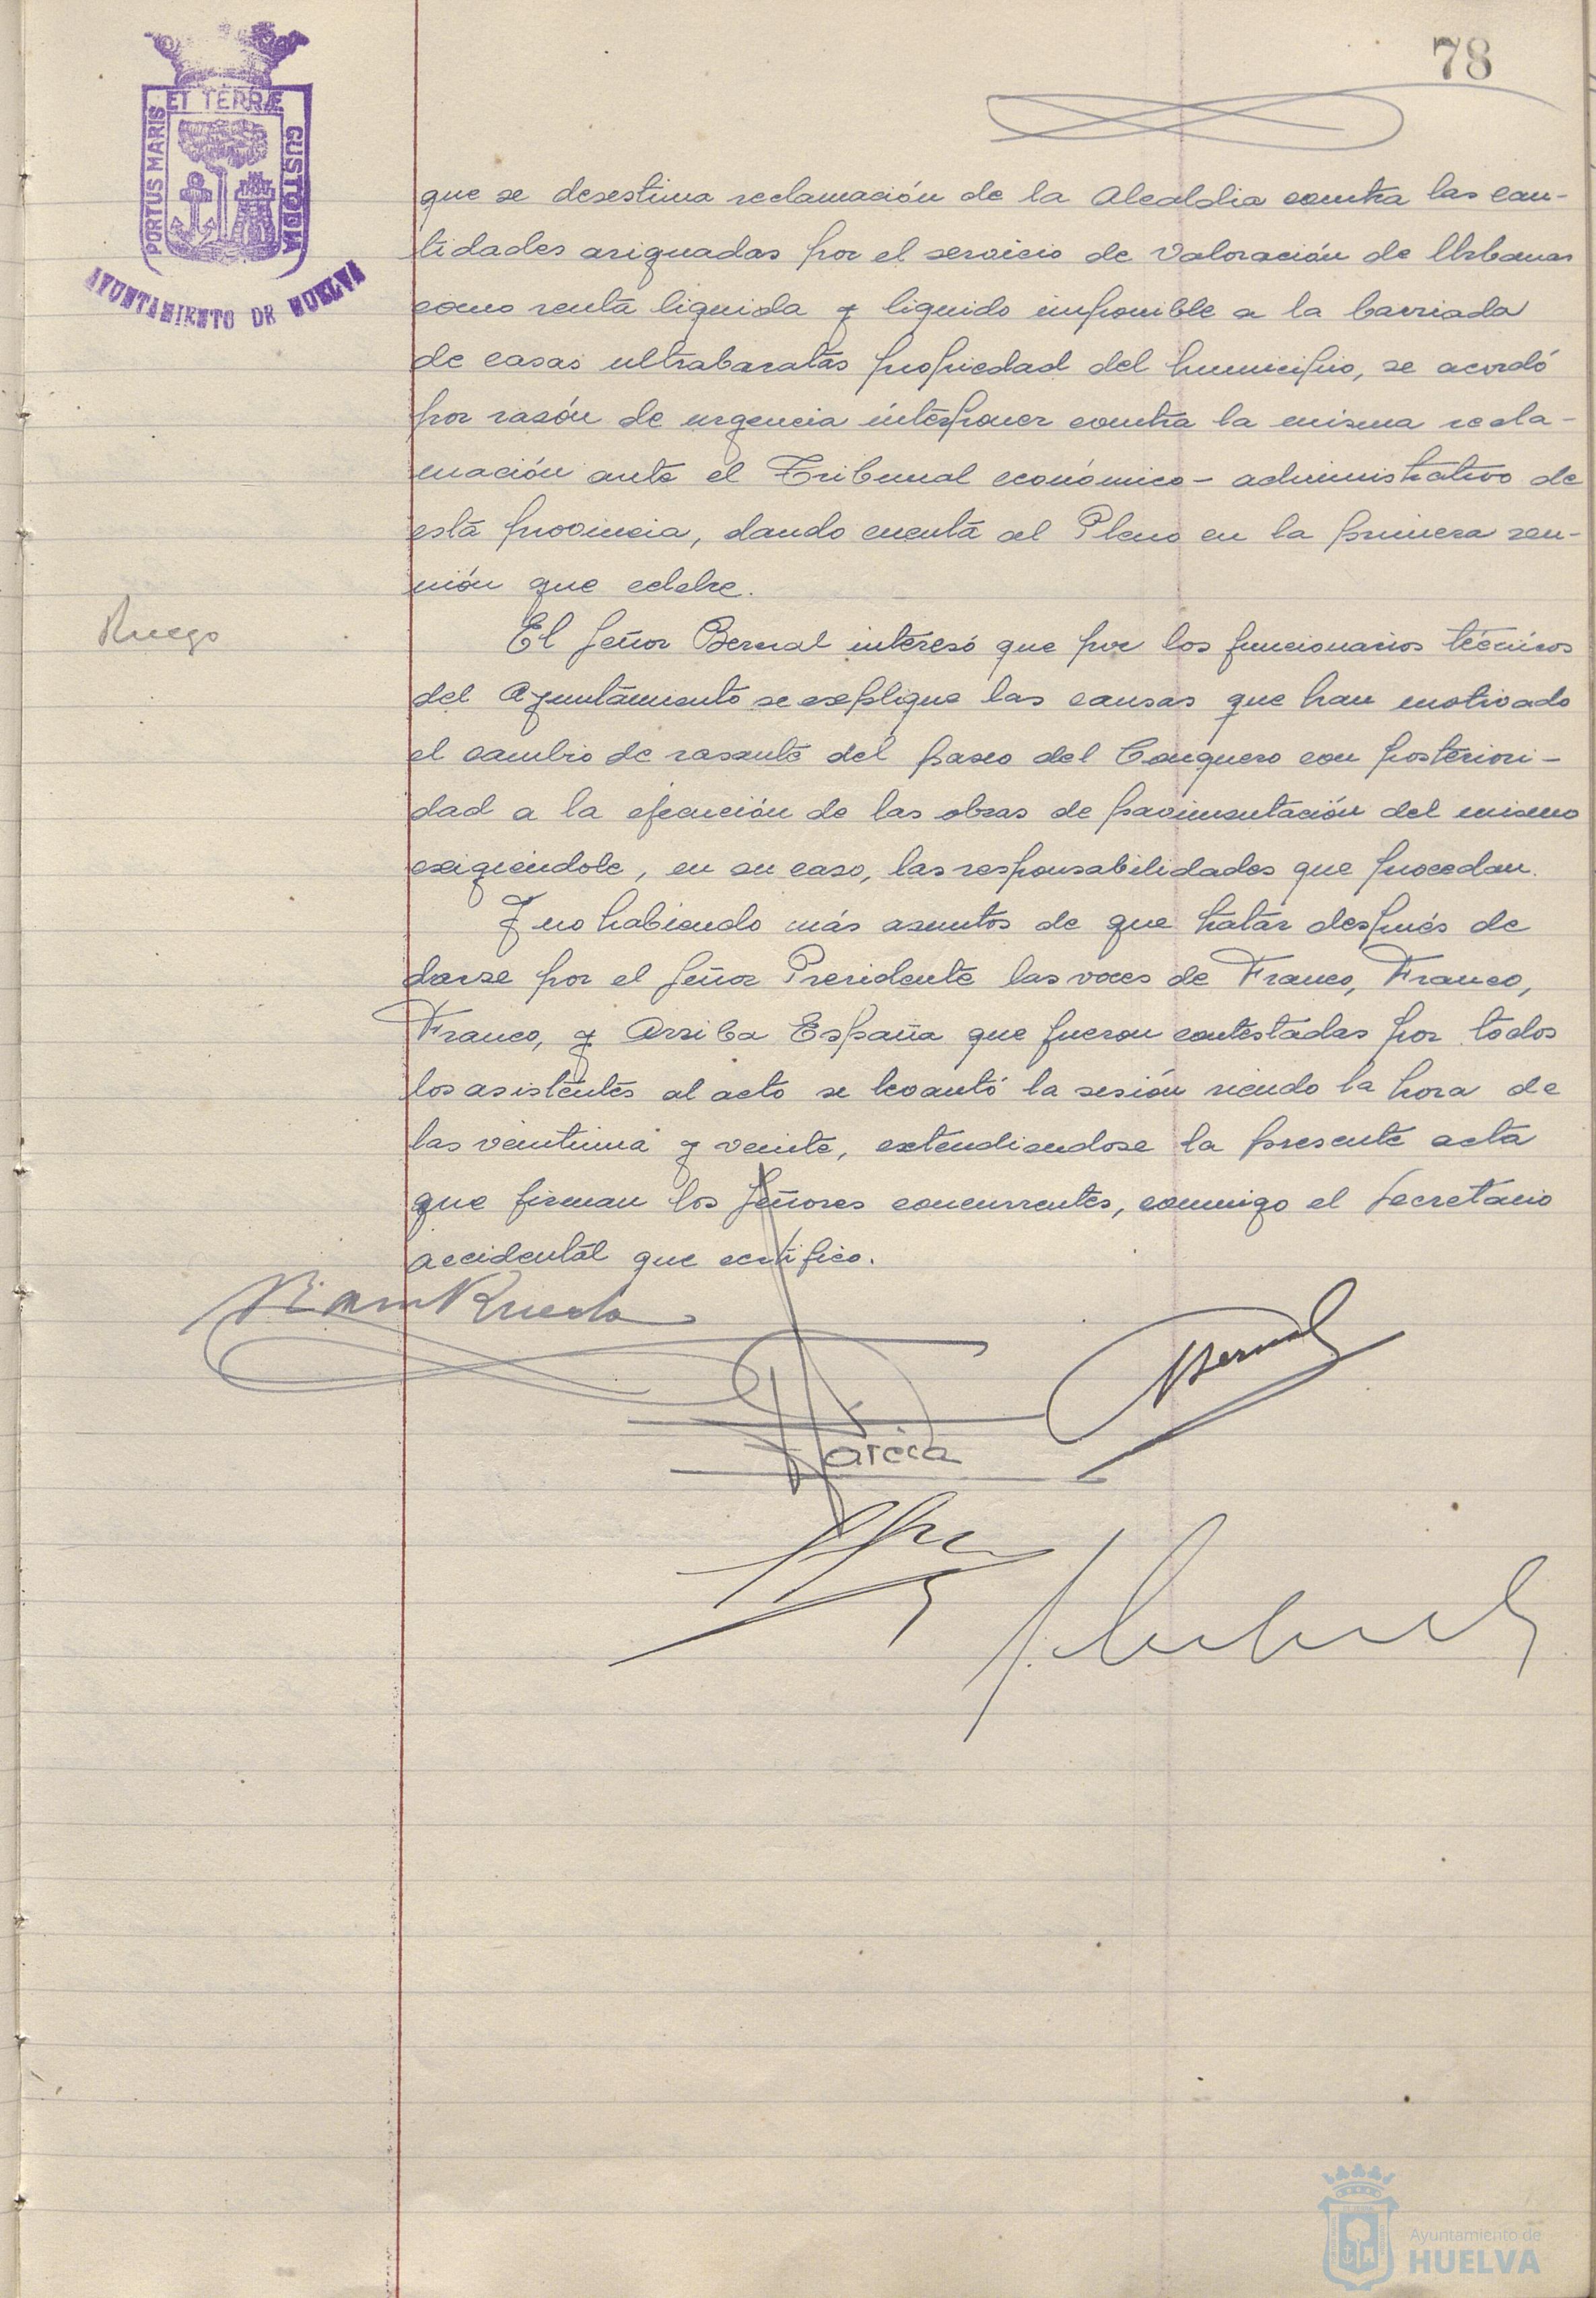 78
PORTUS MARIS
ET TERRÆ
CUSTODIA
AYUNTAMIENTO DE HUELVA
que se desestima reclamación de la Alcaldia contra las can-
tidades asignadas por el servicio de Valoración de Urbanas
como renta liquida y liquido imponible a la barriada
de casas ultrabaratas propiedad del Municipio, se acordó
por rasón de urgencia interponer contra la misma recla-
mación ante el Tribunal económico-administrativo de
esta provincia, dando cuenta al Pleno en la primera reu-
nión que celebre.
Ruego
El Señor Bernal interesó que por los funcionarios técnicos
del Ayuntamiento se explique las causas que han motivado
el cambio de rasante del paseo del Conquero con posteriori-
dad a la ejecución de las obras de pavimentación del mismo
exigiendole, en su caso, las responsabilidades que procedan.
Y no habiendo más asuntos de que tratar después de
darse por el Señor Presidente las voces de Franco, Franco,
Franco, y Arriba España que fueron contestadas por todos
los asistentes al acto se levantó la sesión siendo la hora de
las veintiuna y veinte, extendiendose la presente acta
que firman los Señores concurrentes, conmigo el Secretario
accidental que certifico.
Rueda
Bernal
García
Ayuntamiento de
HUELVA